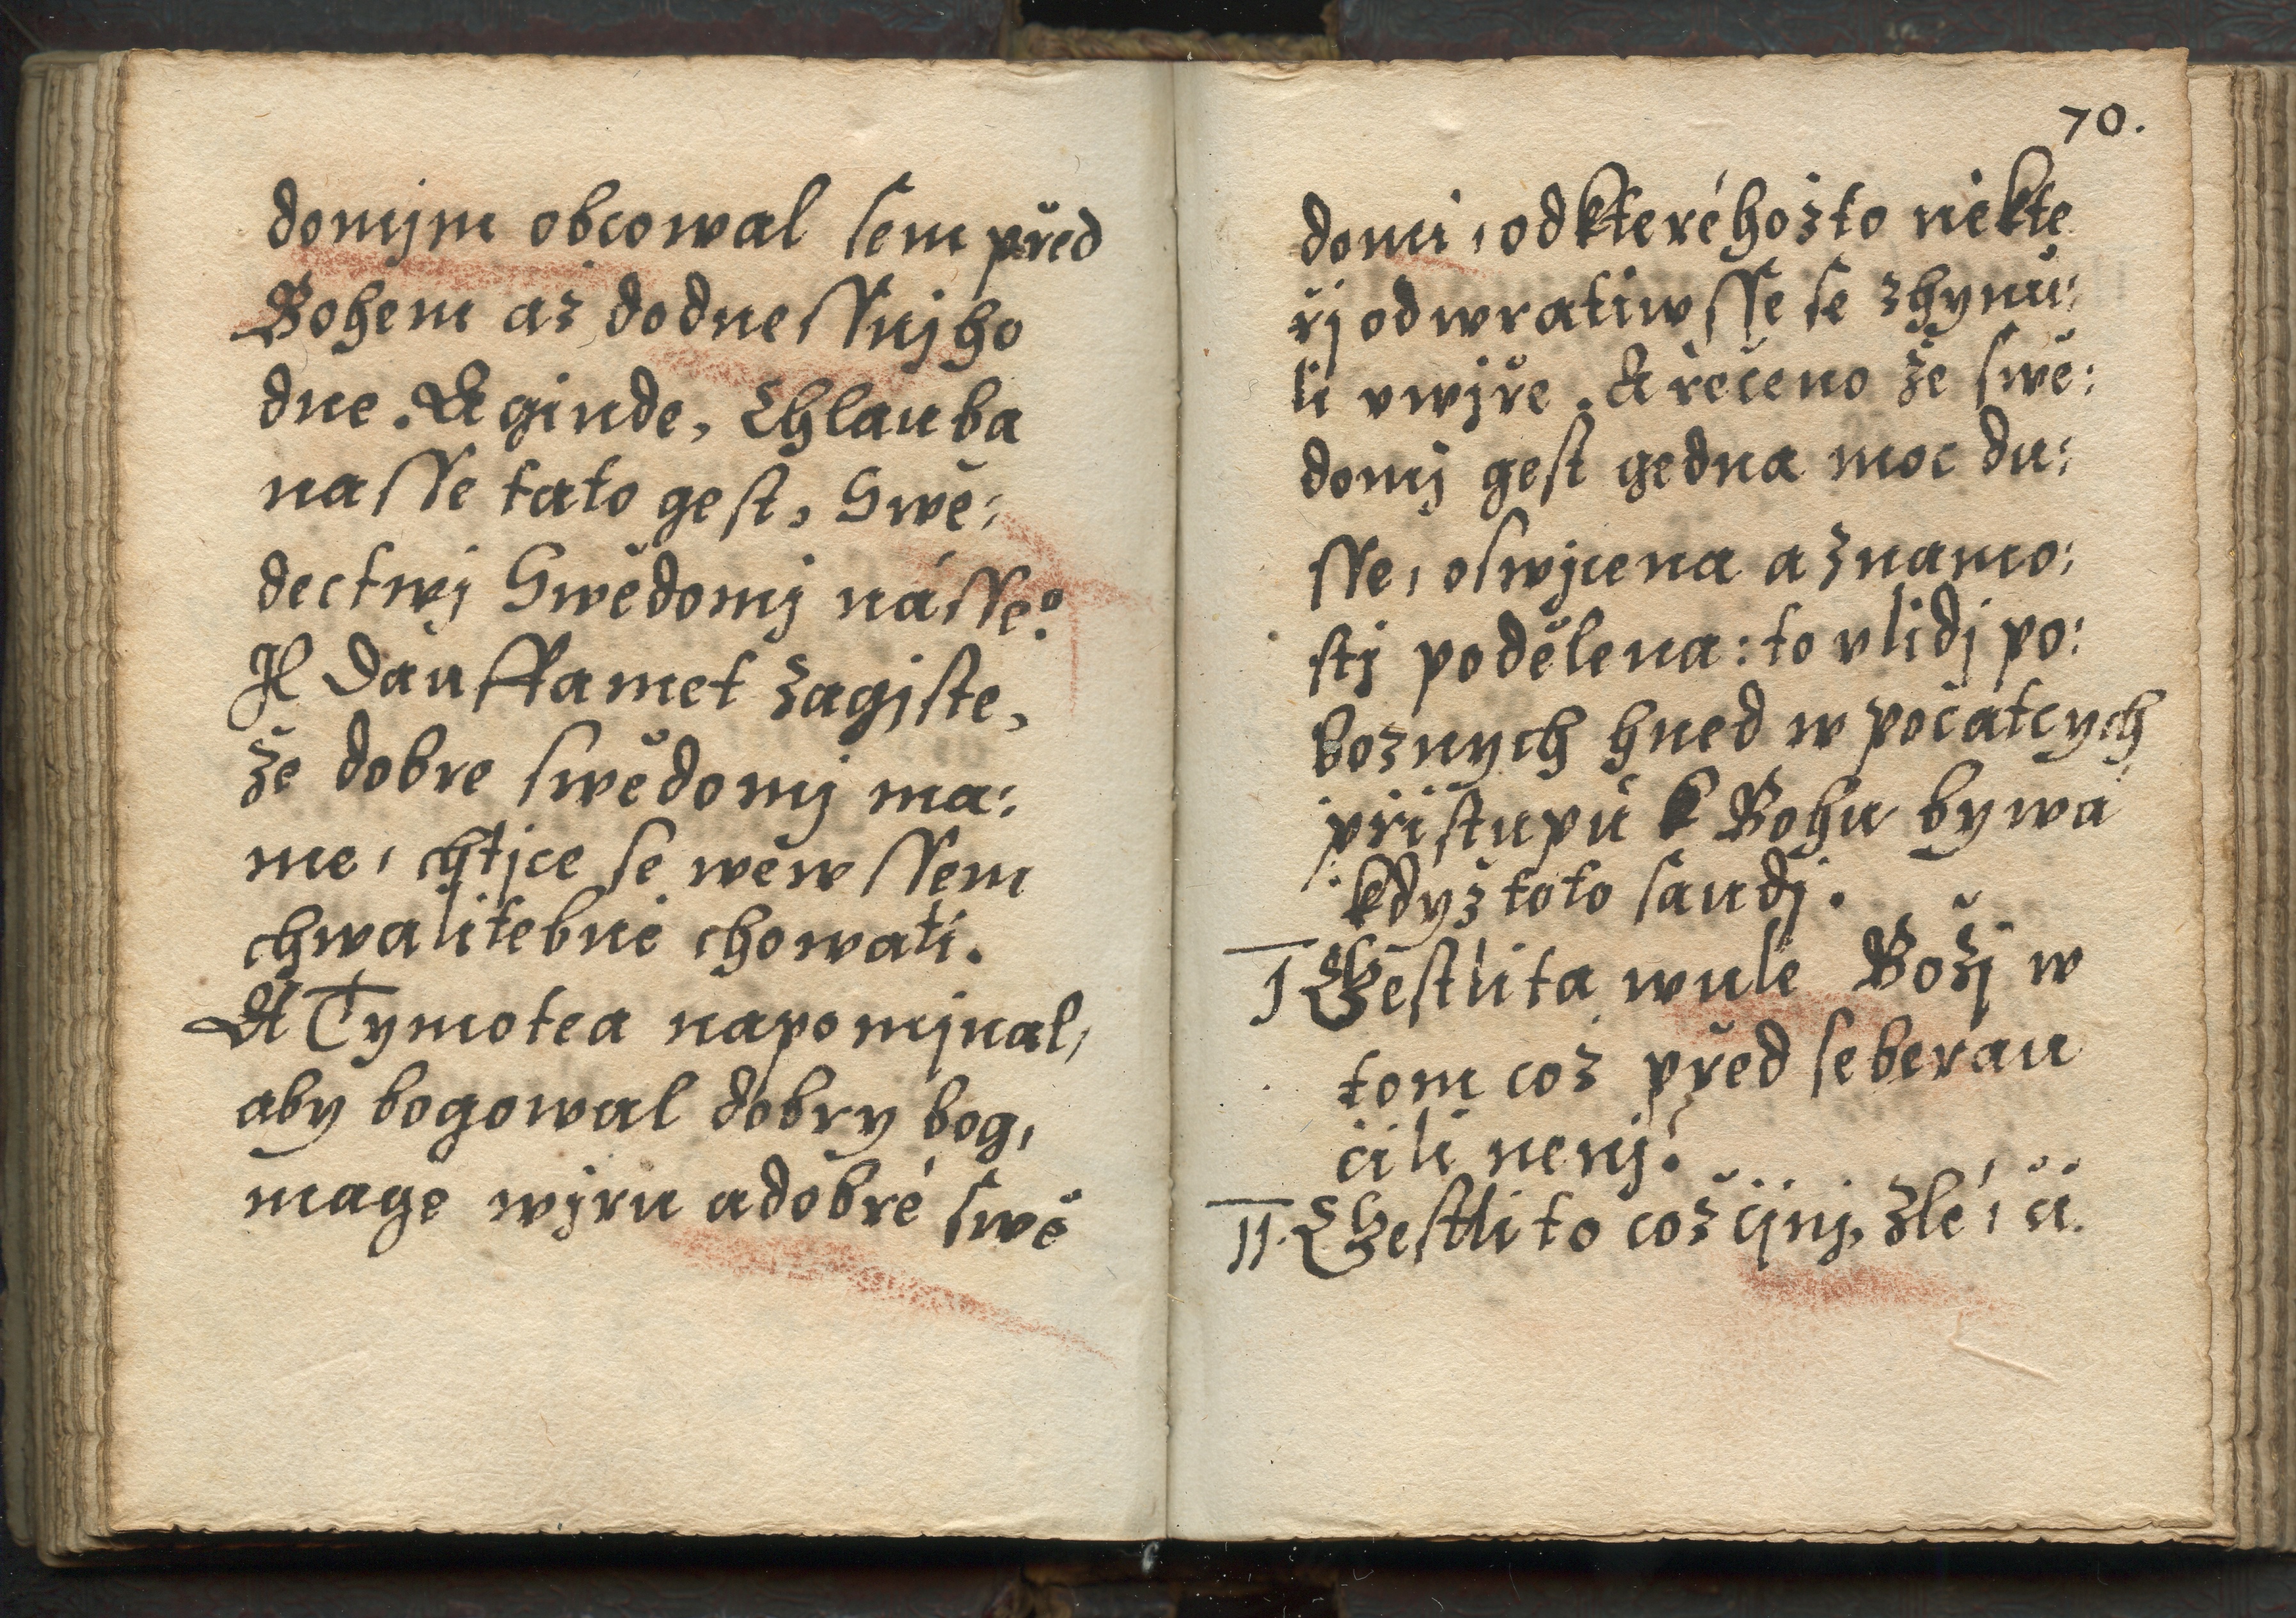 domjm obcowal sem před
Bohem až dodnessnjho
dne. A ginde, Chlauba
nasse tato gest, Swě:
dectwj Swědomj násse:
Jl dauffamet zagiste,
že dobre swědomj ma:
me, chtjce se wěwssem
chwalitebně chowati.
A Tymotea napomjnal,
aby bogowal dobry bog,
mage wjru a dobré swě
70.
domi, od kteréhožto někte
řj odwratiwsse se zhynu:
li v wjře. A řečeno že swě:
domj gest gedna moc du:
sse, oswjcena a znamo:
stj podělena: to v lidj po:
boznych hned w počatcych
přistupu k Bohu bywá
kdyz toto saudj.
I Gestli ta wule Božj w
tom coz před se berau
čili nenj?
II. Gestli to což čjnj, zlé, či